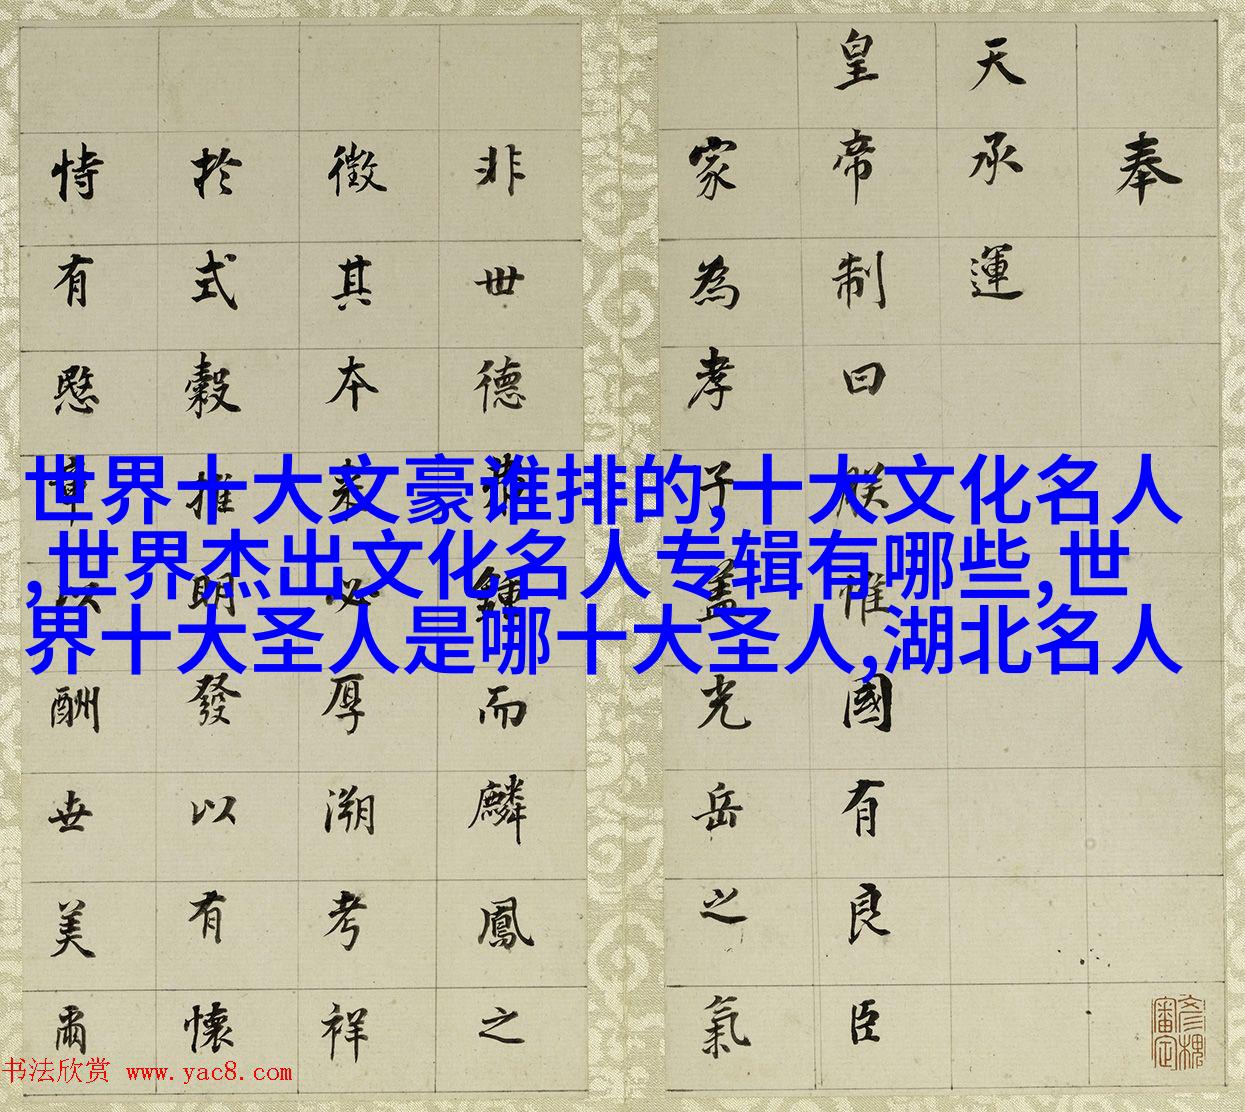 奉
天承運
皇帝制曰朕惟國有良臣
家為孝子蓋光岳之氣
非世德鍾而麟鳳之
徵其本来必厚溯考祥
於式穀推明發以有懷
恃有愍章以酬世美爾
世界十大文豪谁排的,十大文化名人
,世界杰出文化名人专辑有哪些,世
界十大圣人是哪十大圣人,湖北名人
书法欣赏 www.yac8.com